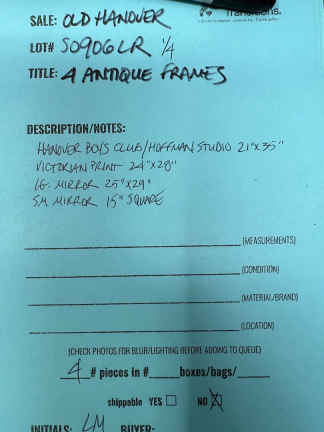 Transitions.
SALE: OLD HANOVER
LOT# S0906LR 1/4
TITLE: 4 ANTIQUE FRAMES
DESCRIPTION/NOTES:
HANOVER BOYS CLUB/HOFFMAN STUDIO 21"X35"
VICTORIAN PRINT 24"X28"
LG. MIRROR 25"X29"
SM. MIRROR 15" SQUARE
(MEASUREMENTS)
(CONDITION)
(MATERIAL/BRAND)
(LOCATION)
(CHECK PHOTOS FOR BLUR/LIGHTING BEFORE ADDING TO QUEUE)
4 # pieces in # boxes/bags/
shippable YES NO X
INITIALS: LM BUYER: